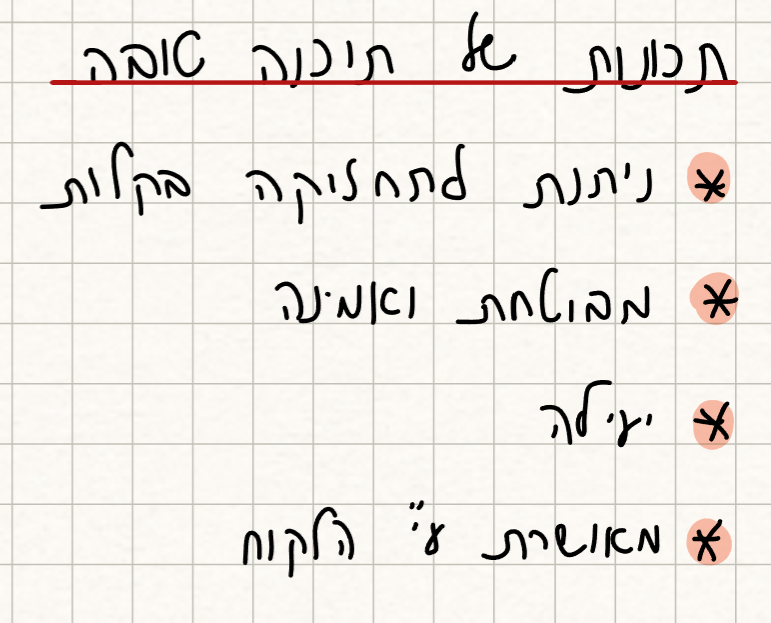 תכונות של תיכנה טובה
* ניתנת לתחזוקה בקלות
* מבוטחת ואמינה
* יעילה
* מאושרת ע"י הלקוח